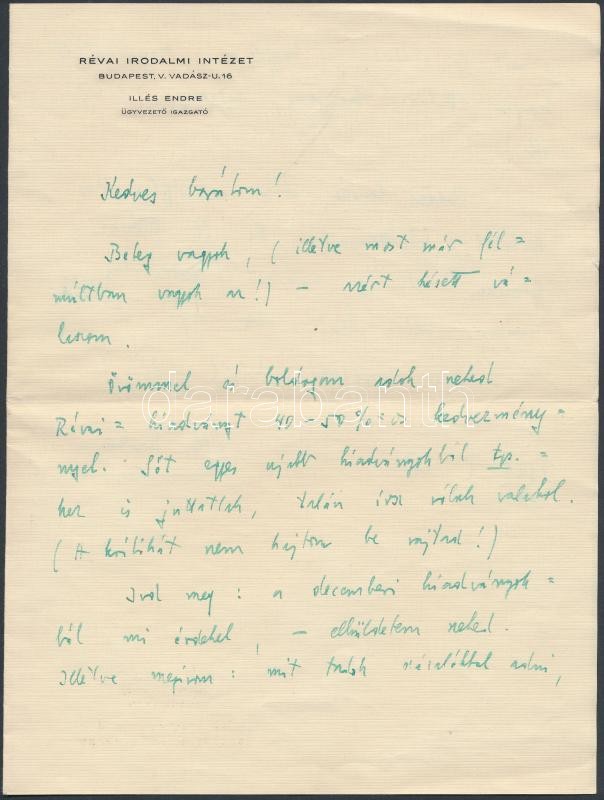 RÉVAI IRODALMI INTÉZET
BUDAPEST, V. VADÁSZ-U. 16
ILLÉS ENDRE
ÜGYVEZETŐ IGAZGATÓ
Kedves barátom!
Beteg vagyok, (illetve most már fél=
multban vagyok az!) – azért késett vá=
laszom.
Örömmel és boldogan adok neked
Révai=kiadványt 40–50%=os kedvezmény=
nyel. Sőt egyes ujabb kiadványokból tp.=
hez is juttatlak, talán írsz róluk valahol.
(A kritikát nem hajtom be rajtad!)
Írd meg: a decemberi kiadványok=
ból mi érdekel, – elküldetem neked.
Illetve megírom: mit tudok rászólóttal adni,
darabanth